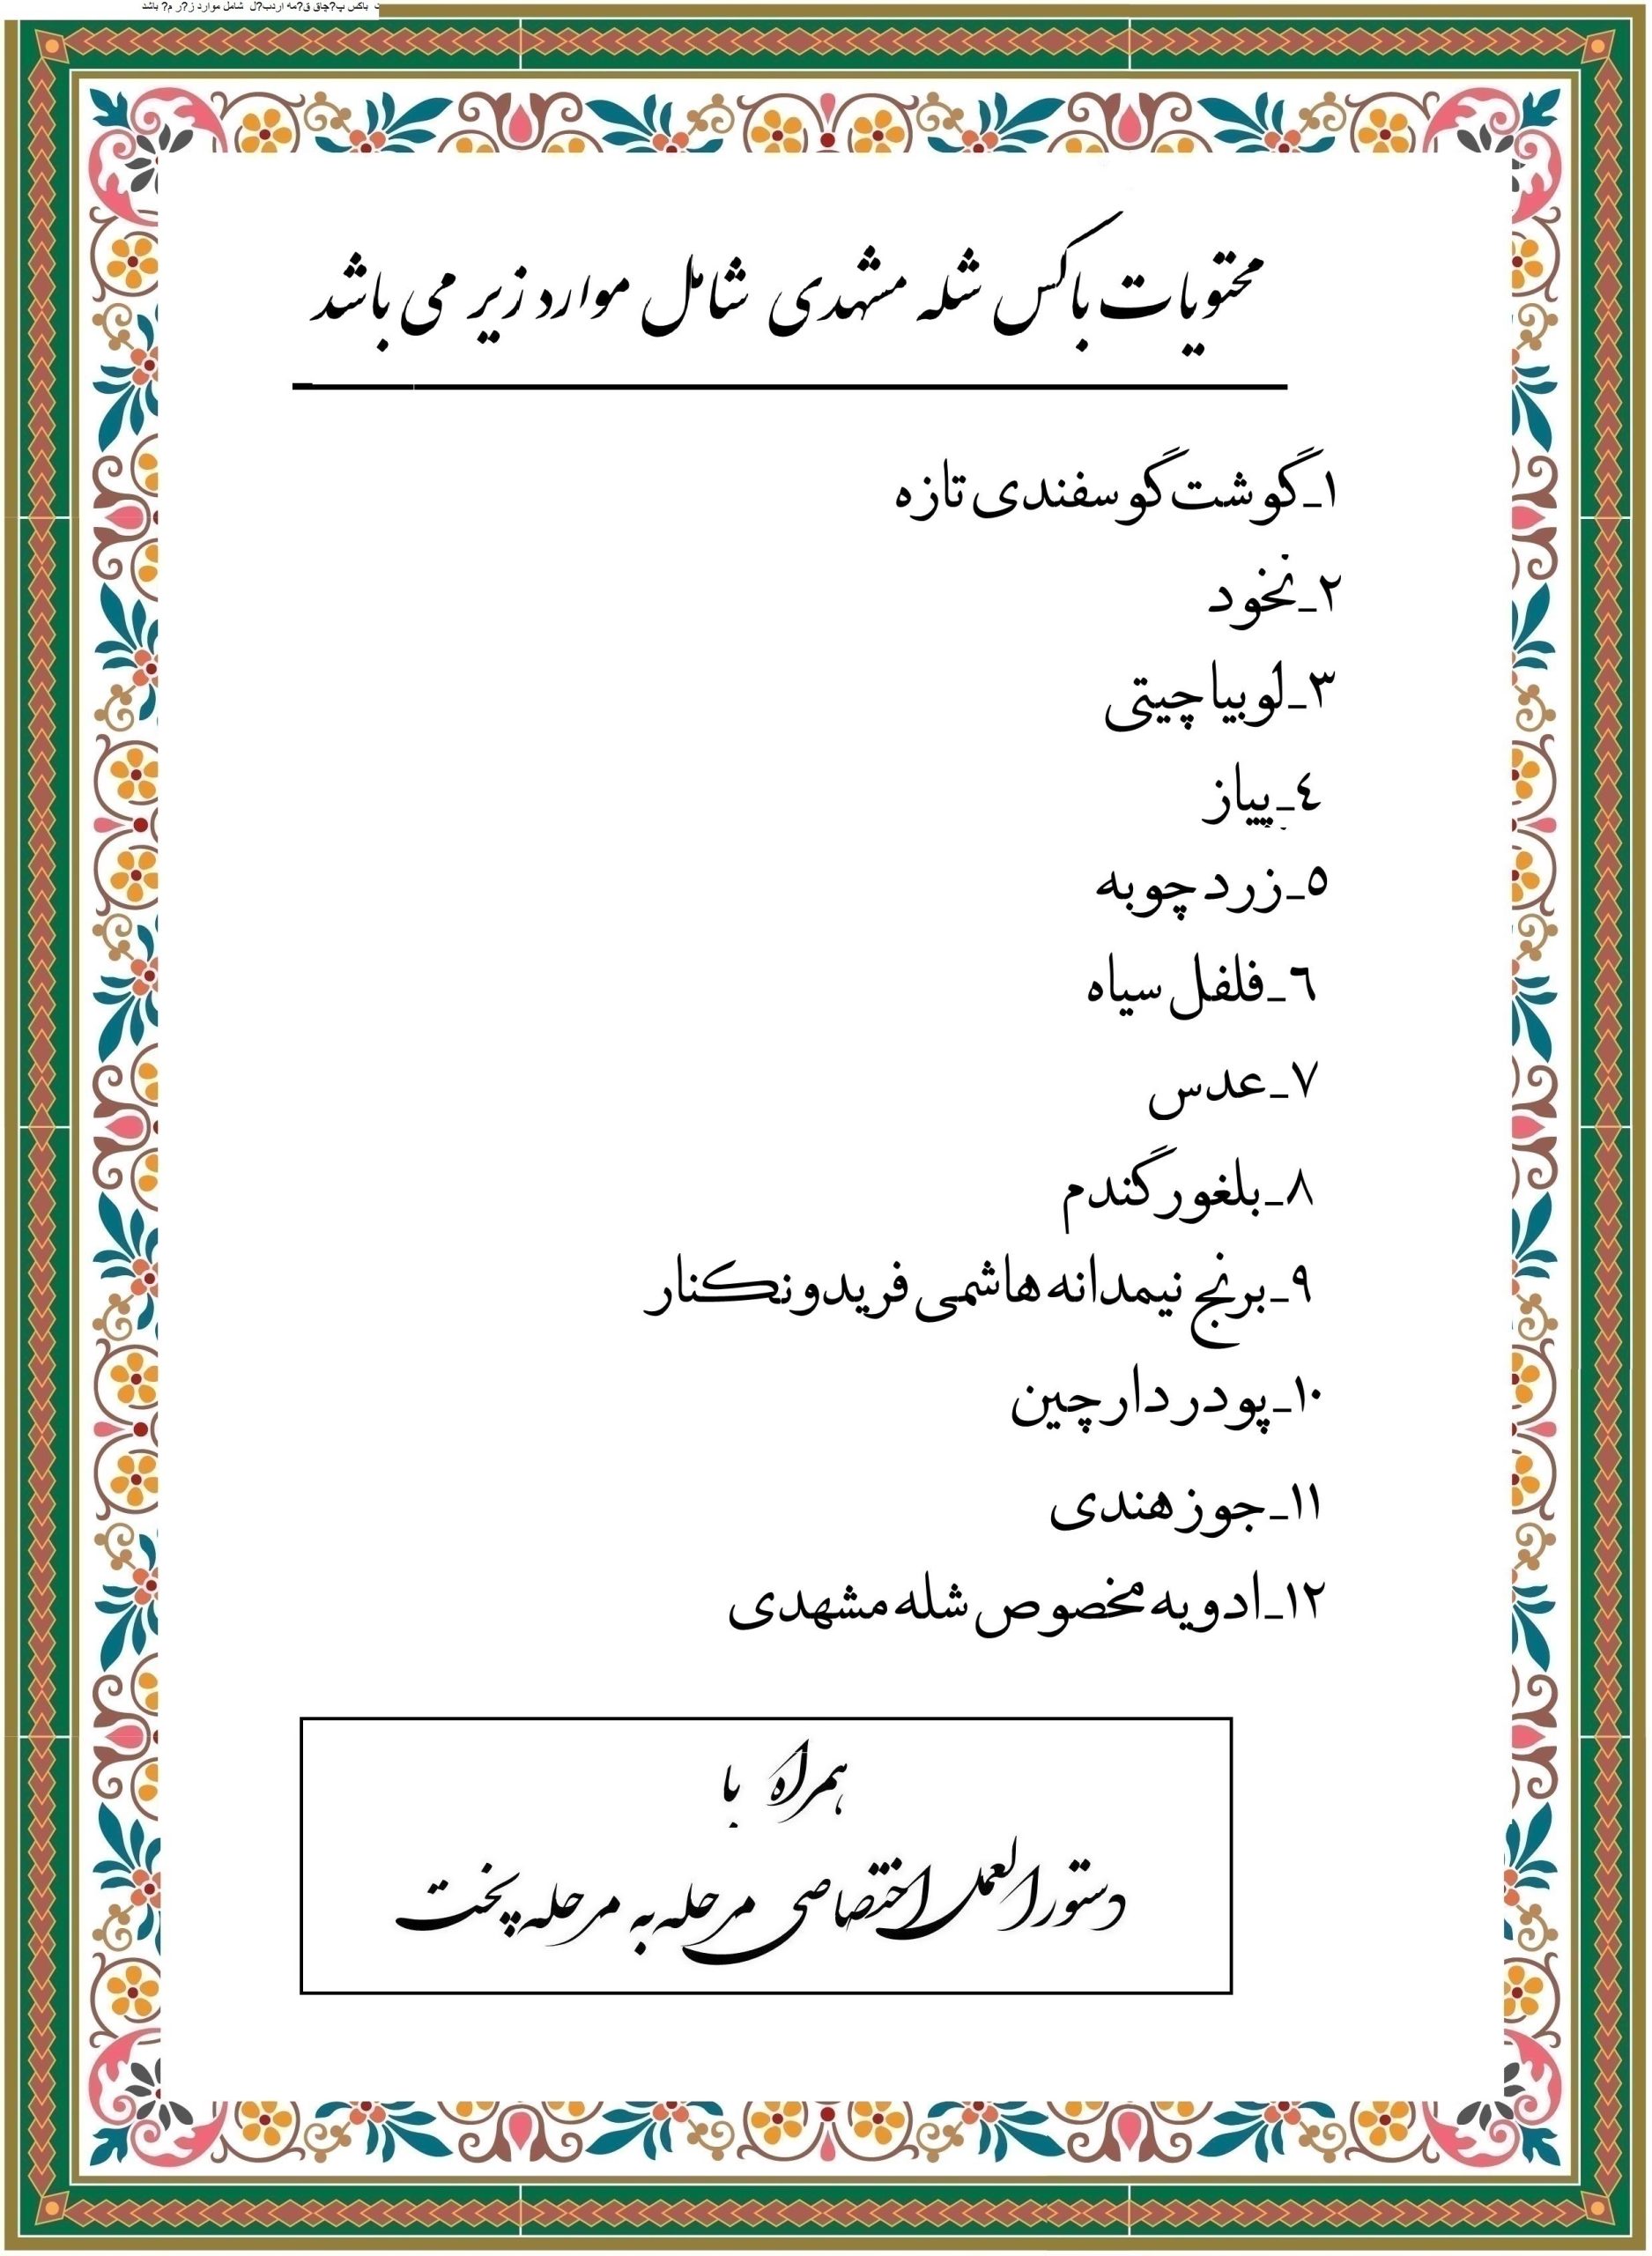 باکس پ?چاق ق?مه اردب?ل شامل موارد ز?ر م? باشد
محتویات باکس شله مشهدی شامل موارد زیر می باشد
۱_گوشت گوسفندی تازه
۲_نخود
۳_لوبیا چیتی
٤_پیاز
٥_زردچوبه
٦_فلفل سیاه
۷_عدس
۸_بلغور گندم
۹_برنج نیمدانه هاشمی فریدونکنار
۱۰_پودر دارچین
۱۱_جوز هندی
۱۲_ادویه مخصوص شله مشهدی
همراه با
دستورالعمل اختصاصی مرحله به مرحله پخت